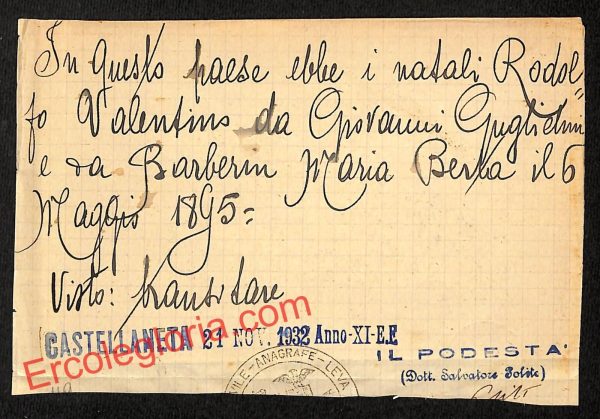 In Questo paese ebbe i natali Rodol=
fo Valentino da Giovanni Guglielmi
e da Barberin Maria Berta il 6
Maggio 1895=
Visto: transitare
CASTELLANETA 21 NOV. 1932 Anno-XI-E.F.
IL PODESTA'
(Dott. Salvatore Polite)
ANAGRAFE-LEVA
Ercolegloria.com